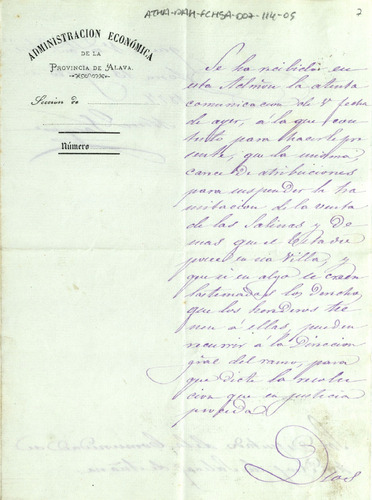 ATHA-DAH-FCHSA-007-114-05
2
ADMINISTRACION ECONÓMICA
DE LA
PROVINCIA DE ALAVA.
Seccion de
Número
Se ha recibido en
esta Admon la atenta
comunicacion de V. fecha
de ayer, á la que
para hacerle pre
sente, que la misma,
carece de atribuciones
para suspender la tra
mitacion de la venta
de las Salinas y de
mas que el Estado
posee en esa Villa, y
que si en algo se creen
lastimados los derechos,
que los herederos tie
nen á ellas, pueden
recurrir á la Direccion
gral del ramo, para
que dicte la resolu
cion que en justicia
proceda.
Dios